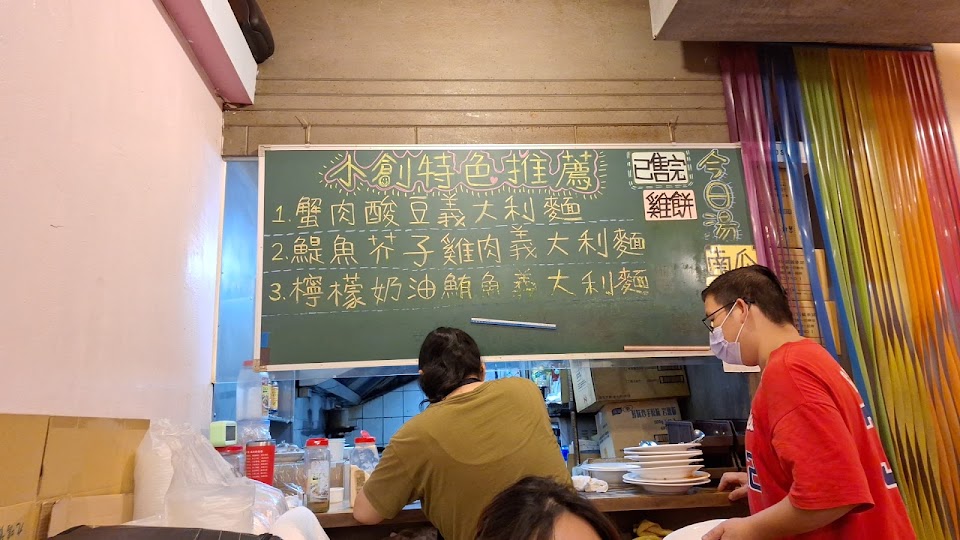 小創特色推薦
1.蟹肉酸豆義大利麵
2.鯷魚芥子雞肉義大利麵
3.檸檬奶油鮪魚義大利麵
已售完
雞餅
今日湯
南瓜